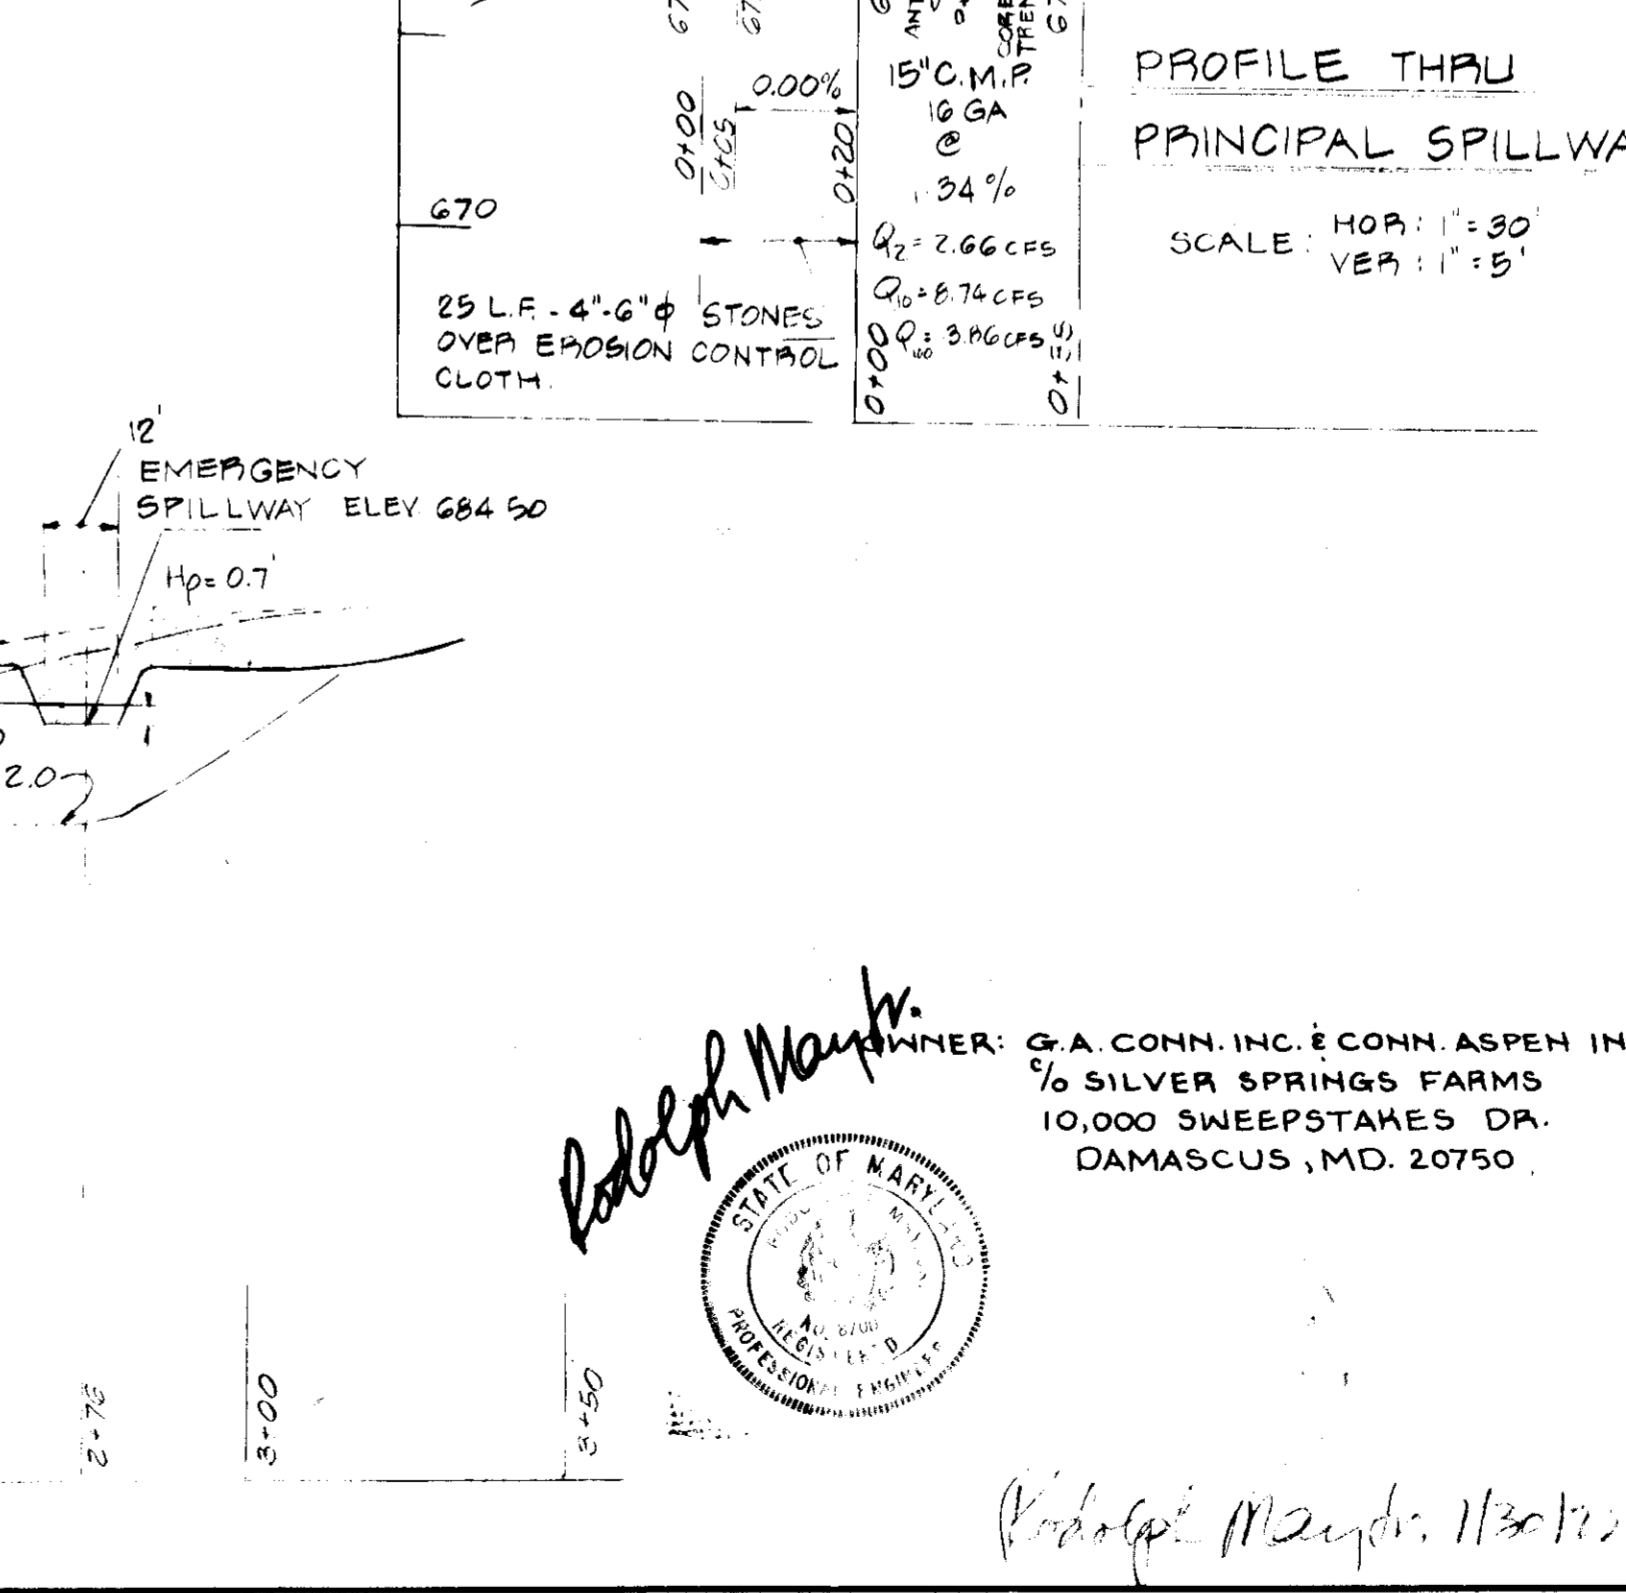 0.00%
0+00
0+20
15" C.M.P.
16 GA
@
.34%
Q2 = 2.66 CFS
Q10 = 8.74 CFS
0+00
PROFILE THRU
PRINCIPAL SPILLWA
SCALE: HOR: 1" = 30'
VER: 1" = 5'
670
25 L.F. - 4"-6" φ STONES
OVER EROSION CONTROL
CLOTH.
12'
EMERGENCY
SPILLWAY ELEV 684 50
Hp= 0.7'
2.0
Rodolph May Jr.
OWNER: G.A. CONN. INC. & CONN. ASPEN IN
c/o SILVER SPRINGS FARMS
10,000 SWEEPSTAKES DR.
DAMASCUS, MD. 20750
STATE OF MARYLAND
REGISTERED
PROFESSIONAL ENGINEER
2+75
3+00
3+50
Rodolph May Jr. 1/30/